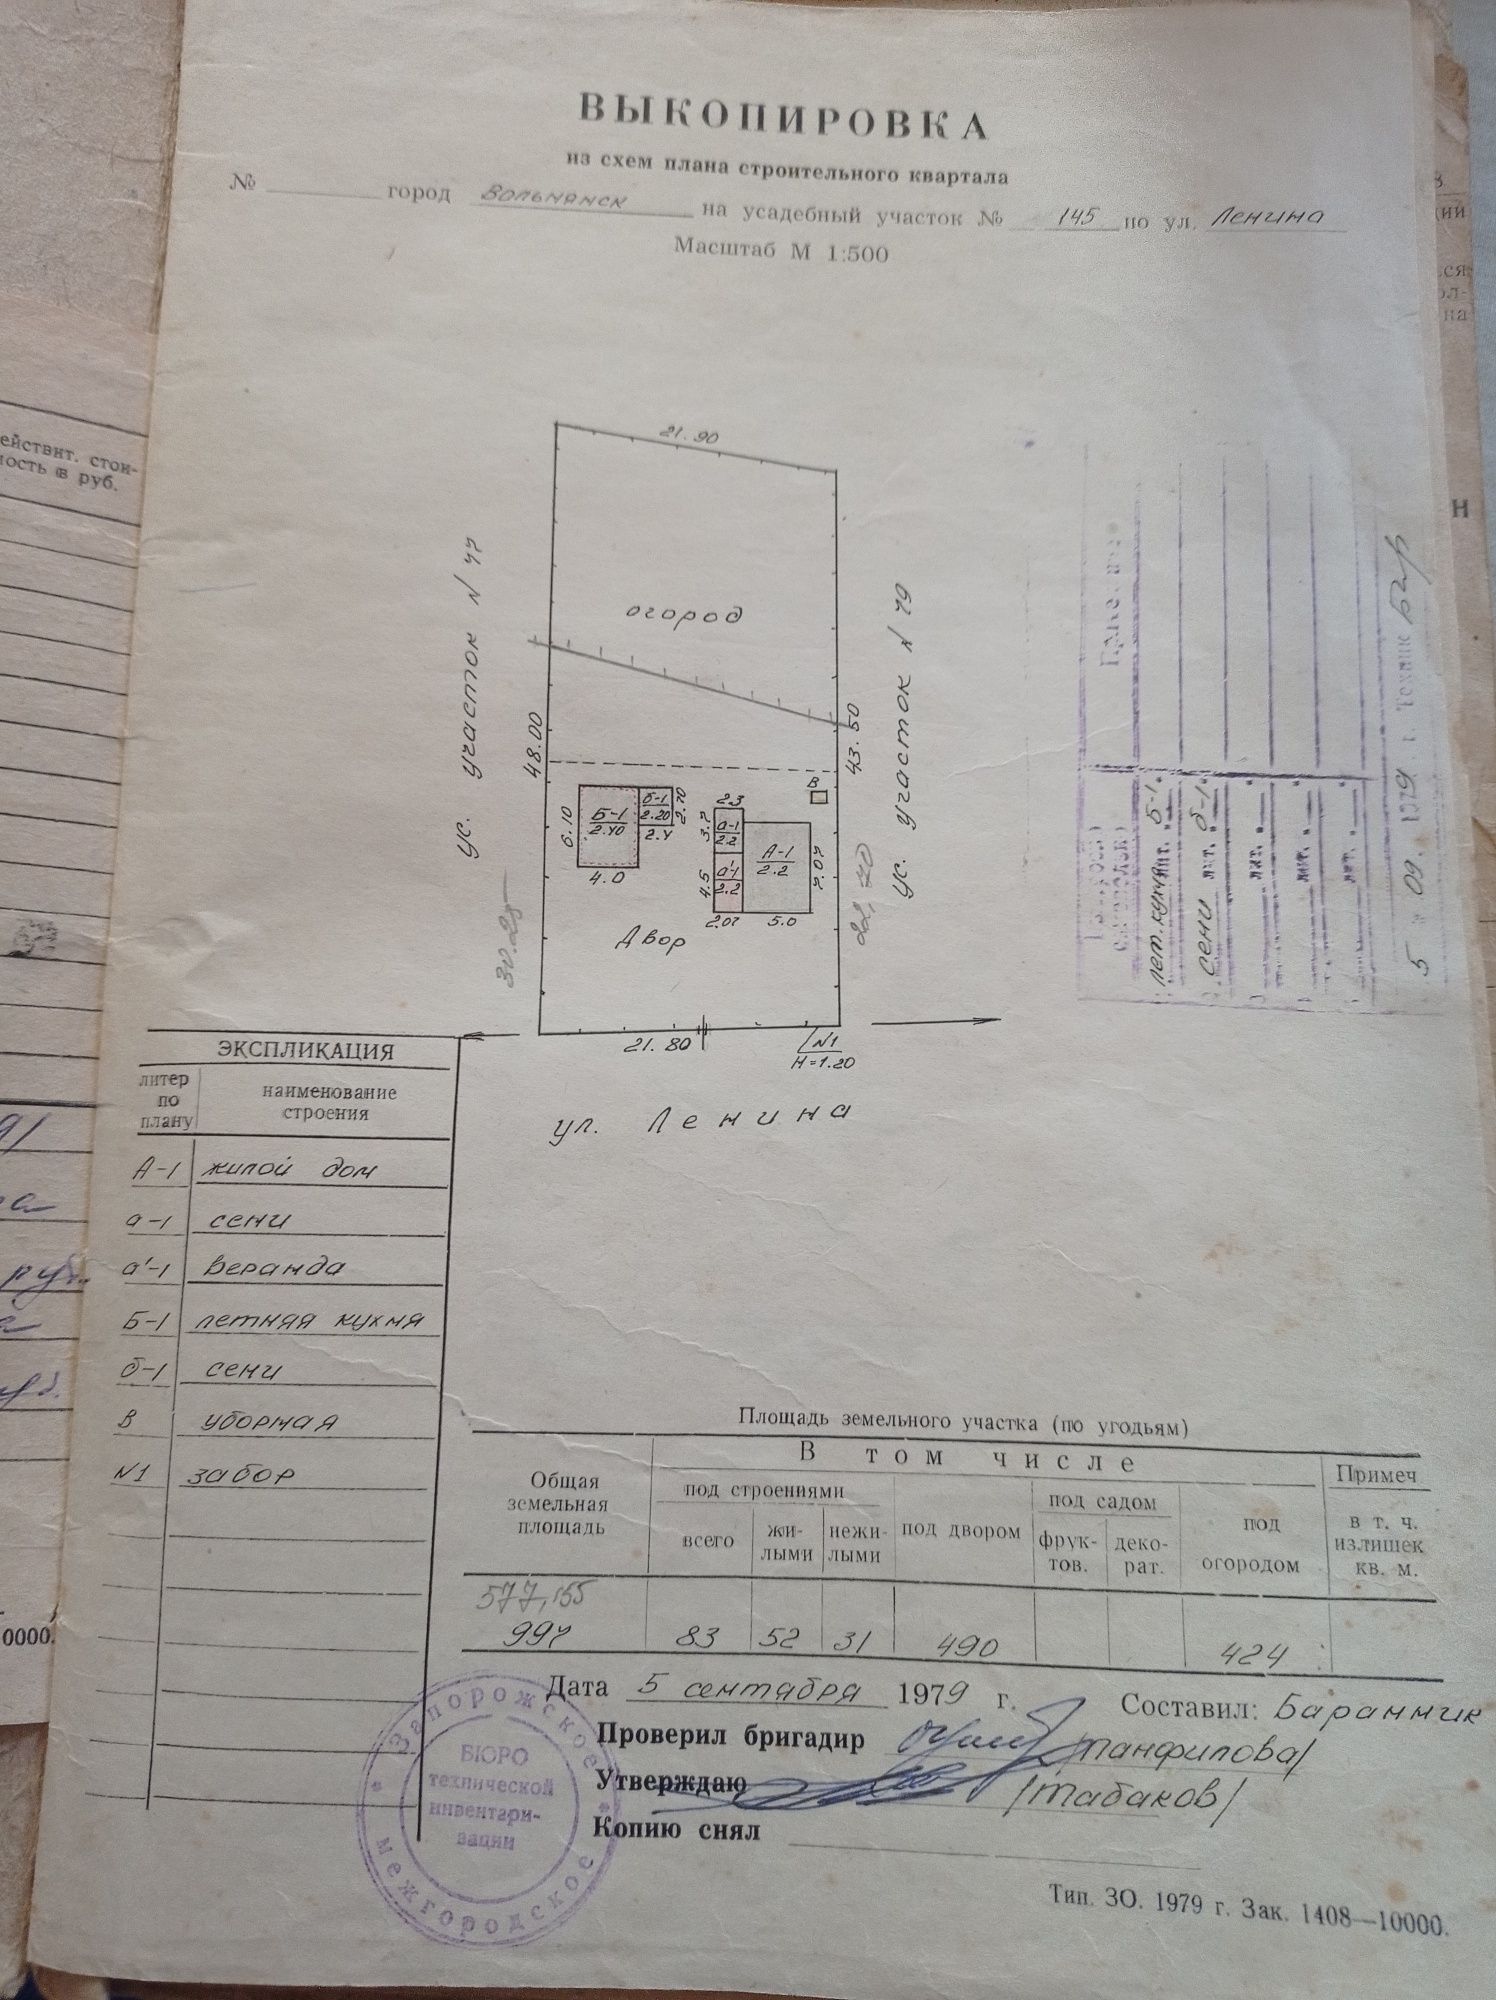 ВЫКОПИРОВКА
из схем плана строительного квартала
№ город Вольнянск на усадебный участок № 145 по ул. Ленина
Масштаб М 1:500
ействит. стои-
ность в руб.
21.90
огород
ус. участок N 77
ус. участок N 79
48.00
43.50
В
6.10
Б-1
2.40
4.0
б-1
2.20
2.70
2.4
2.3
3.7
а-1
2.2
4.5
а'-1
2.2
2.07
А-1
2.2
5.0
30.25
22,70
Двор
21.80
N1
H=1.20
ул. Ленина
лет. кухня лит. "Б-1"
сени лит. "б-1"
лит. "
лит. "
лит. "
5 " 09. 1979 г. Техник Бар
ЭКСПЛИКАЦИЯ
литер по плану
наименование строения
А-1 жилой дом
а-1 сени
а'-1 веранда
Б-1 летняя кухня
б-1 сени
В уборная
N1 забор
Площадь земельного участка (по угодьям)
Общая земельная площадь
В том числе
Примеч.
под строениями
всего
жи-
лыми
нежи-
лыми
под двором
под садом
фрук-
тов.
деко-
рат.
под огородом
в т. ч.
излишек
кв. м.
577,155
997 83 52 31 490 424
Дата 5 сентября 1979 г. Составил: Баранник
Проверил бригадир /Панфилова/
Утверждаю /Табаков/
Копию снял
Запорожское
межгородское
БЮРО
технической
инвентари-
зации
Тип. ЗО. 1979 г. Зак. 1408—10000.
0000.